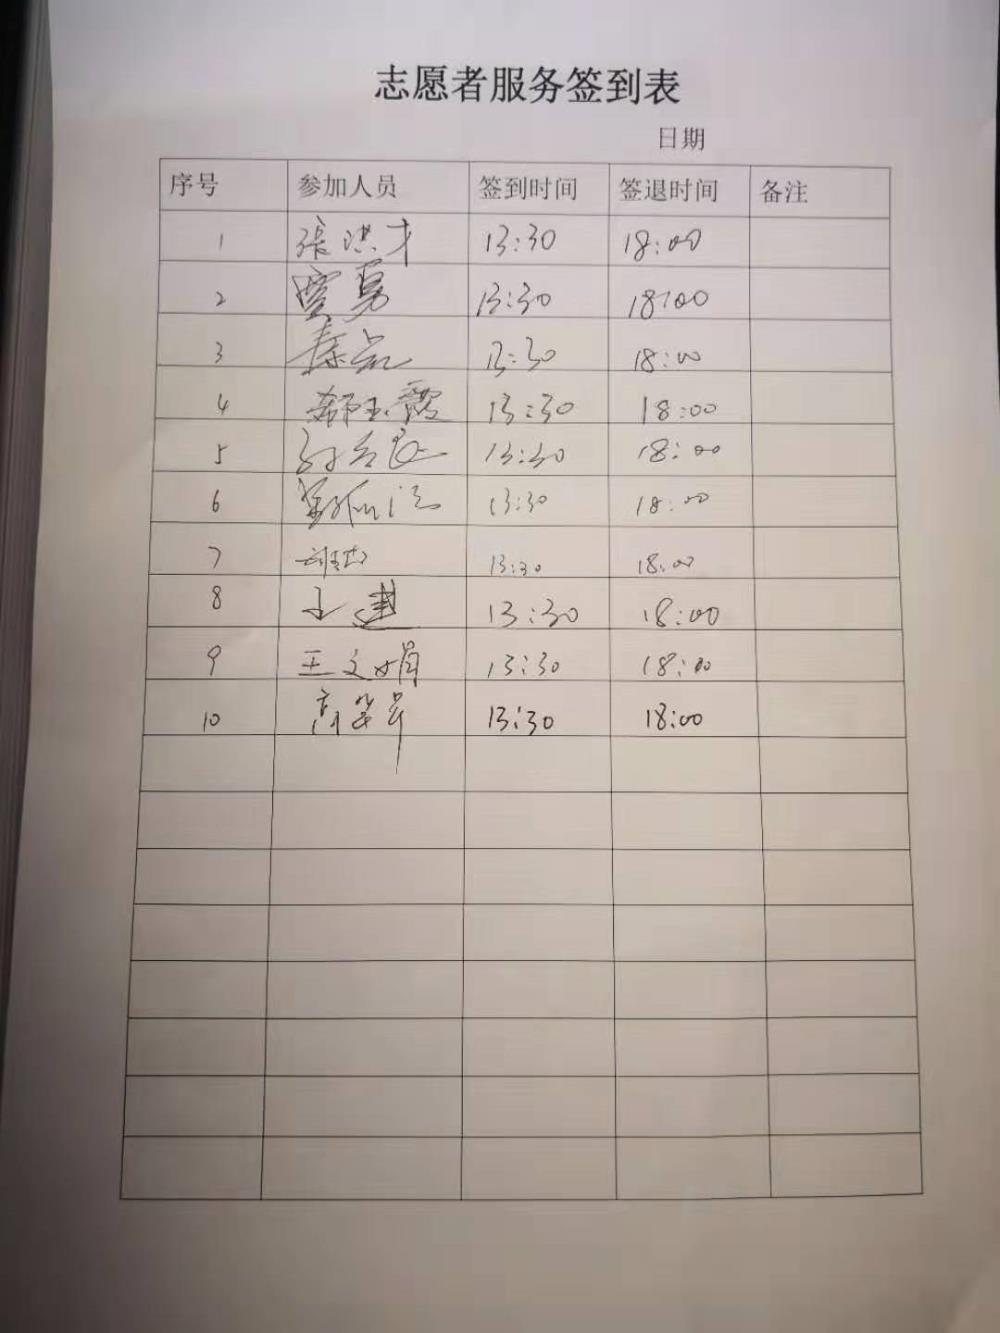 志愿者服务签到表
日期
序号 参加人员 签到时间 签退时间 备注
1 张洪才 13:30 18:00
2 贾勇 13:30 18:00
3 13:30 18:00
4 13:30 18:00
5 13:30 18:00
6 13:30 18:00
7 13:30 18:00
8 王建 13:30 18:00
9 王文娟 13:30 18:00
10 13:30 18:00